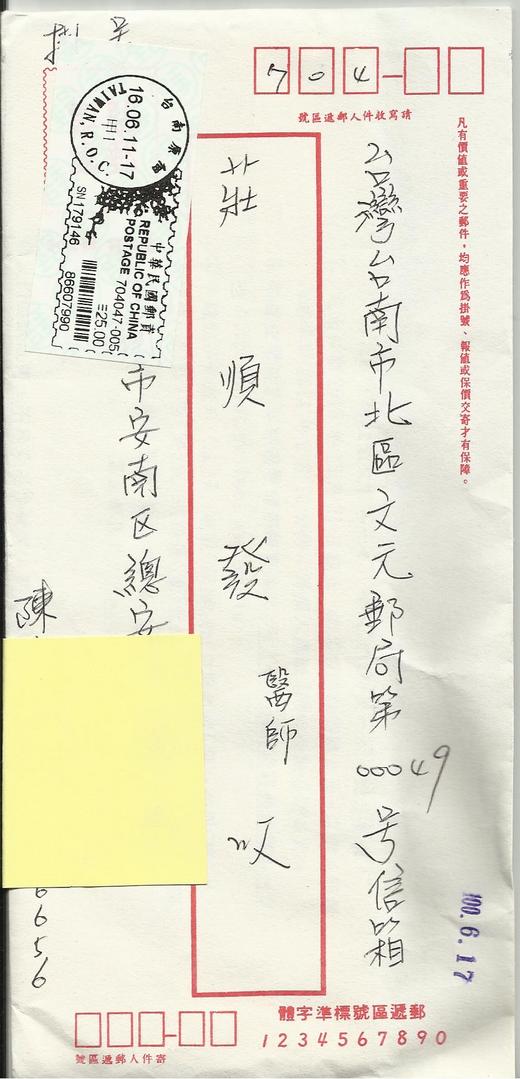 704
號區遞郵人件收寫請
凡有價值或重要之郵件，均應作為掛號、報值或保價交寄才有保障。
台灣台南市北區文元郵局第00049号信箱
莊順發醫師收
16.06.11-17
TAIWAN, R.O.C.
中華民國郵資
REPUBLIC OF CHINA
POSTAGE 704047-005
25.00
SN179146
86607990
市安南区總安
陳
6656
100.6.17
體字準標號區遞郵
1234567890
號區遞郵人件寄